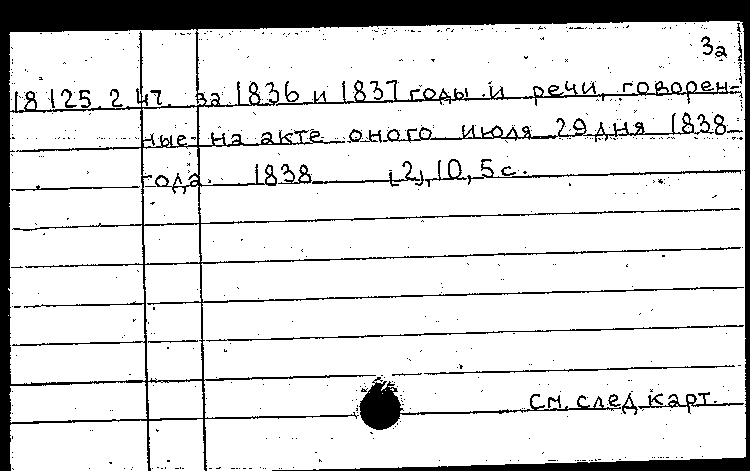 3а
18125.2.47. за 1836 и 1837 годы и речи, говорен-
ные на акте оного июля 29 дня 1838
года. 1838 [2], 10, 5 с.
см. след. карт.